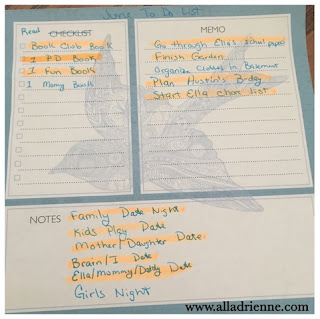 June To Do List
Read CHECKLIST
Book Club Book
1 P.D Book
1 Fun Book
1 Mommy Book
MEMO
Go through Ella's school papers
Finish Garden
Organize Clothes in Basement
Plan Austin's B-day
Start Ella chore list
NOTES
Family Date Night
Kids Play Date
Mother/Daughter Date
Brain/I Date
Ella/Mommy/Daddy Date
Girls Night
www.alladrienne.com